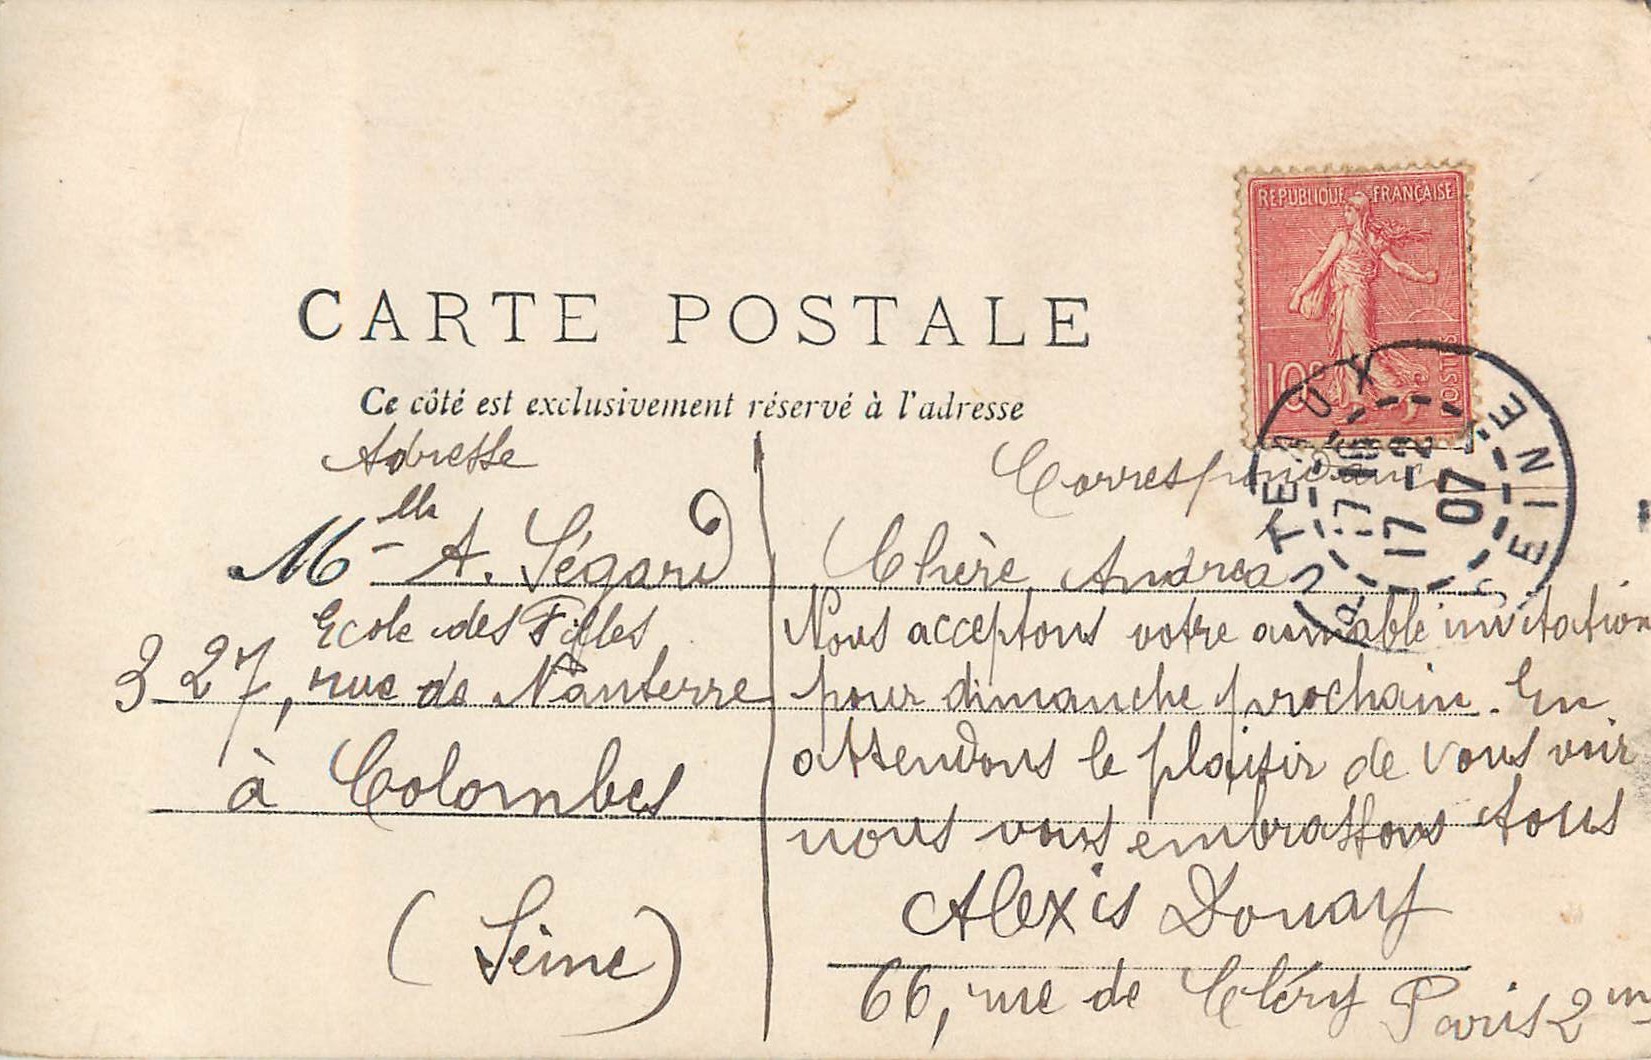 REPUBLIQUE FRANÇAISE
10c
POSTES
PUTEAUX
SEINE
17 16
17 -2
07
CARTE POSTALE
Ce côté est exclusivement réservé à l'adresse
Adresse
Mlle A. Ségard
Ecole des Filles
327, rue de Nanterre
à Colombes
(Seine)
Correspondance
Chère Andrea
Nous acceptons votre aimable invitation
pour dimanche prochain. En
attendons le plaisir de vous voir
nous vous embrassons tous
Alexis Douay
66, rue de Cléry Paris 2m